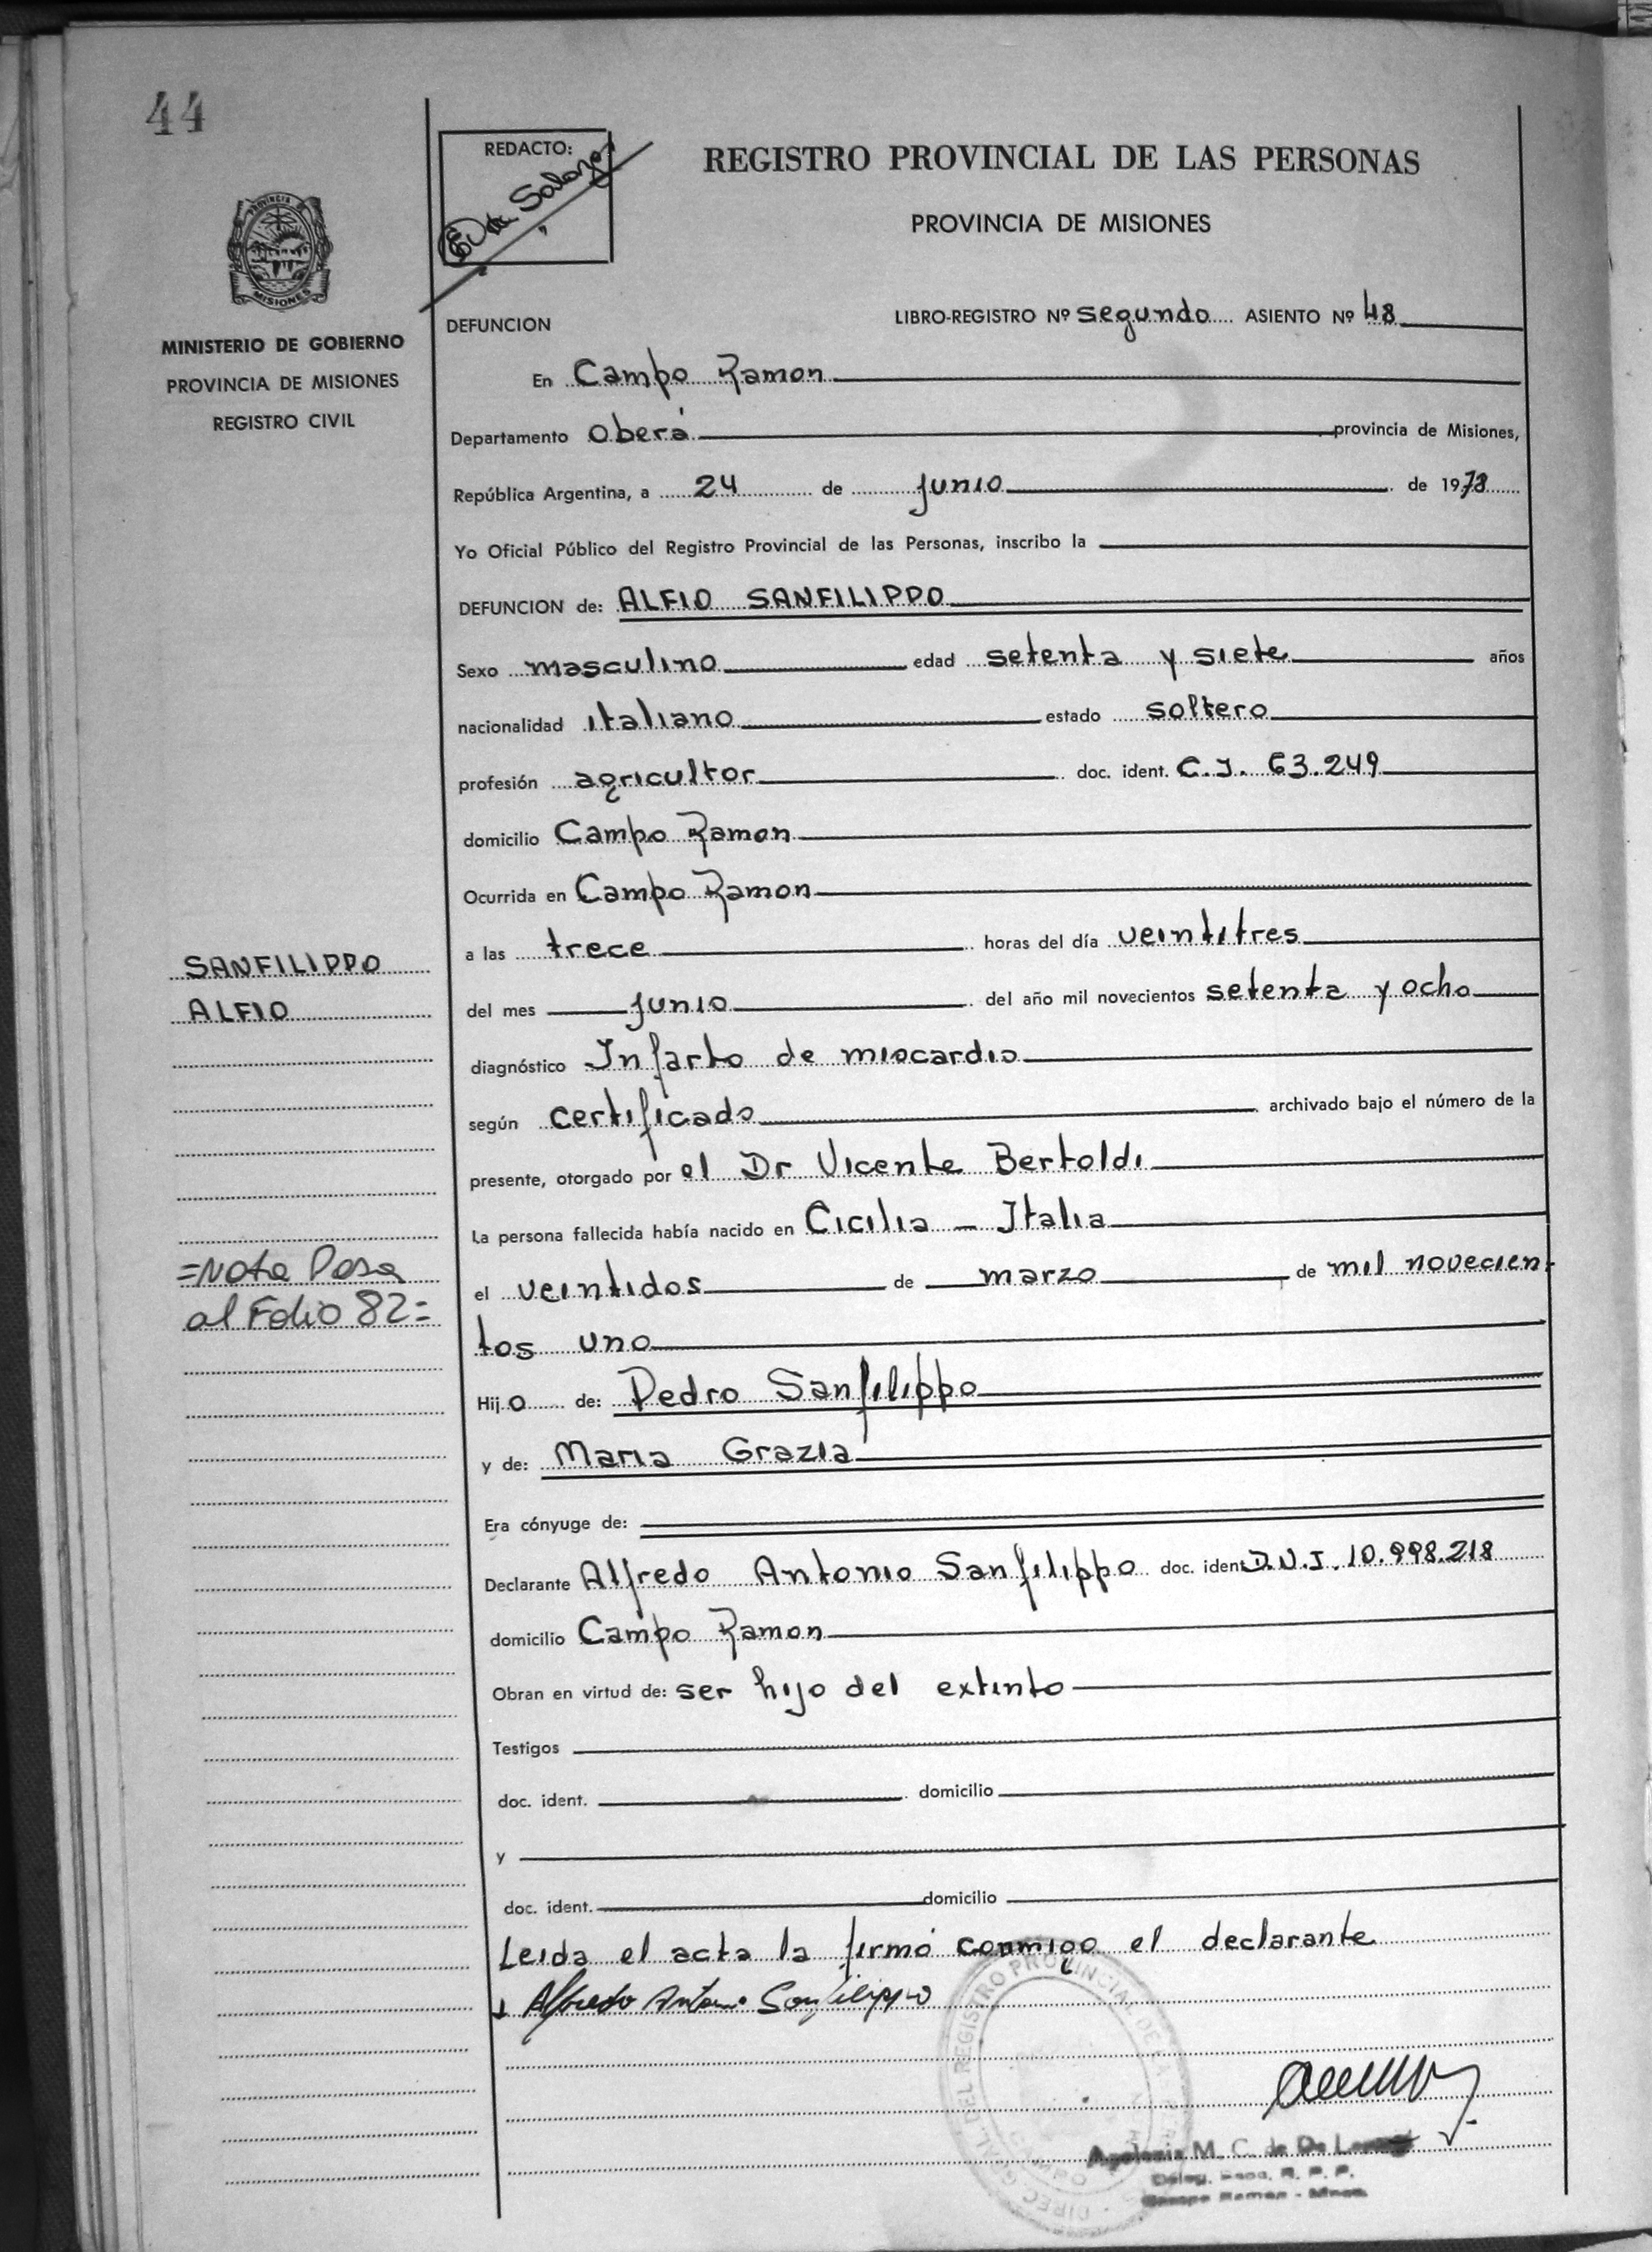 44
REDACTO:
REGISTRO PROVINCIAL DE LAS PERSONAS
PROVINCIA DE MISIONES
PROVINCIA DE
MISIONES
MINISTERIO DE GOBIERNO
PROVINCIA DE MISIONES
REGISTRO CIVIL
DEFUNCION
LIBRO-REGISTRO Nº segundo ASIENTO Nº 48
En Campo Ramon
Departamento Oberá provincia de Misiones,
República Argentina, a 24 de junio de 1978
Yo Oficial Público del Registro Provincial de las Personas, inscribo la
DEFUNCION de: ALFIO SANFILIPPO
Sexo masculino edad setenta y siete años
nacionalidad italiano estado soltero
profesión agricultor doc. ident. C.I. 63.249
domicilio Campo Ramon
Ocurrida en Campo Ramon
a las trece horas del día veintitres
SANFILIPPO
ALFIO
del mes junio del año mil novecientos setenta y ocho
diagnóstico Infarto de miocardio
según certificado archivado bajo el número de la
presente, otorgado por el Dr Vicente Bertoldi
La persona fallecida había nacido en Cicilia - Italia
=Nota Pasa
al Folio 82=
el veintidos de marzo de mil novecien-
tos uno
Hijo de: Pedro Sanfilippo
y de: Maria Grazia
Era cónyuge de:
Declarante Alfredo Antonio Sanfilippo doc. ident. D.N.I. 10.998.218
domicilio Campo Ramon
Obran en virtud de: ser hijo del extinto
Testigos
doc. ident. domicilio
y
doc. ident. domicilio
Leida el acta la firmó conmigo el declarante
Alfredo Antonio Sanfilippo
DEL REGISTRO PROVINCIAL DE LA
M. C. de De
Deleg. R. P. P.
Campo Ramon - Mnes.